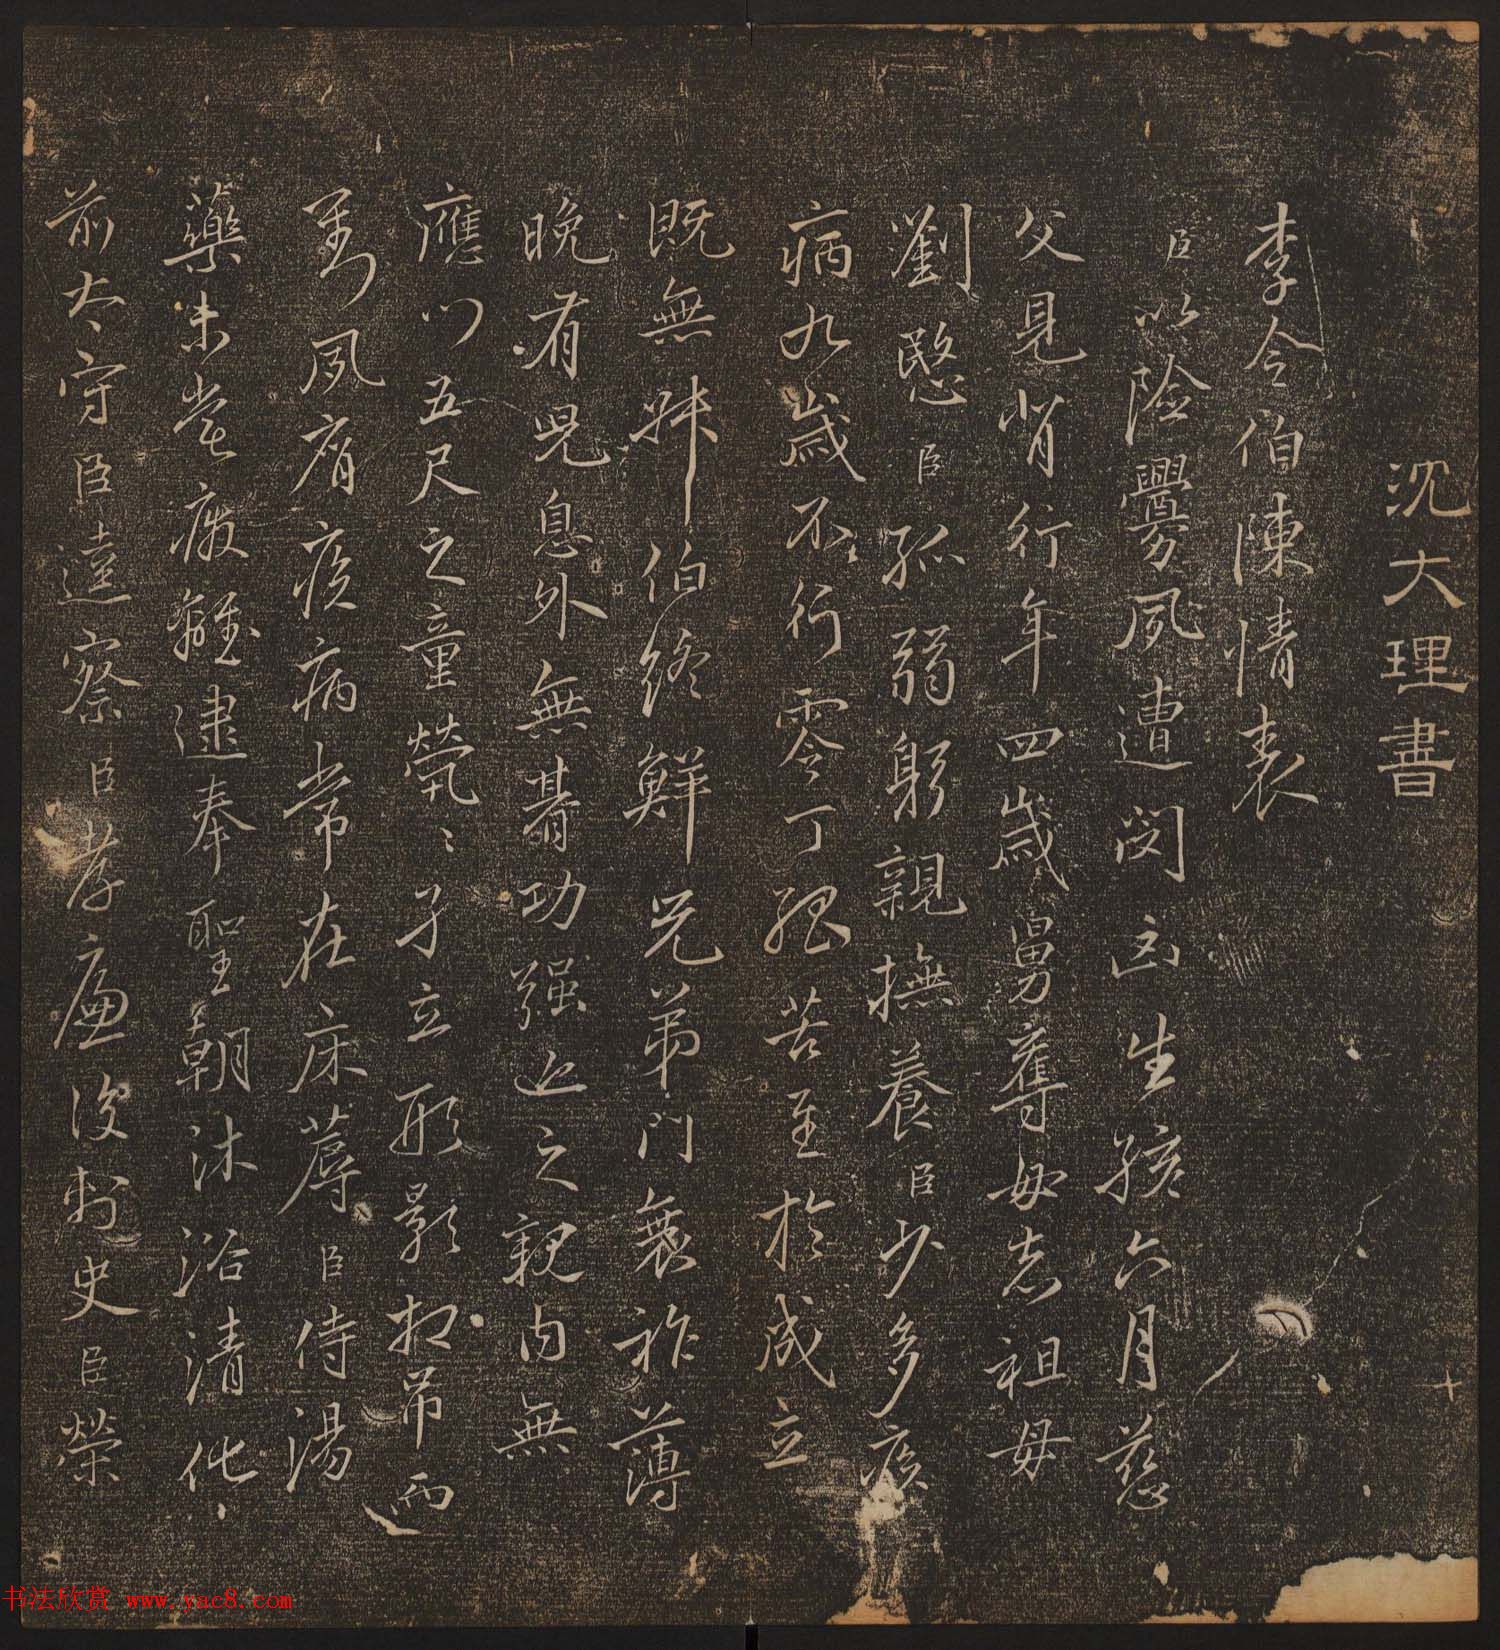 沈大理書
李令伯陳情表
臣以險釁夙遭閔凶生孩六月慈
父見背行年四歲舅奪母志祖母
劉愍臣孤弱躬親撫養臣少多疾
病九歲不行零丁孤苦至於成立
既無叔伯終鮮兄弟門衰祚薄
晚有兒息外無朞功強近之親內無
應門五尺之童煢〻孑立形影相弔而
劉夙有疾病常在床蓐臣侍湯
藥未嘗廢離逮奉聖朝沐浴清化
前太守臣逵察臣孝廉後刺史臣榮
书法欣赏 www.yac8.com